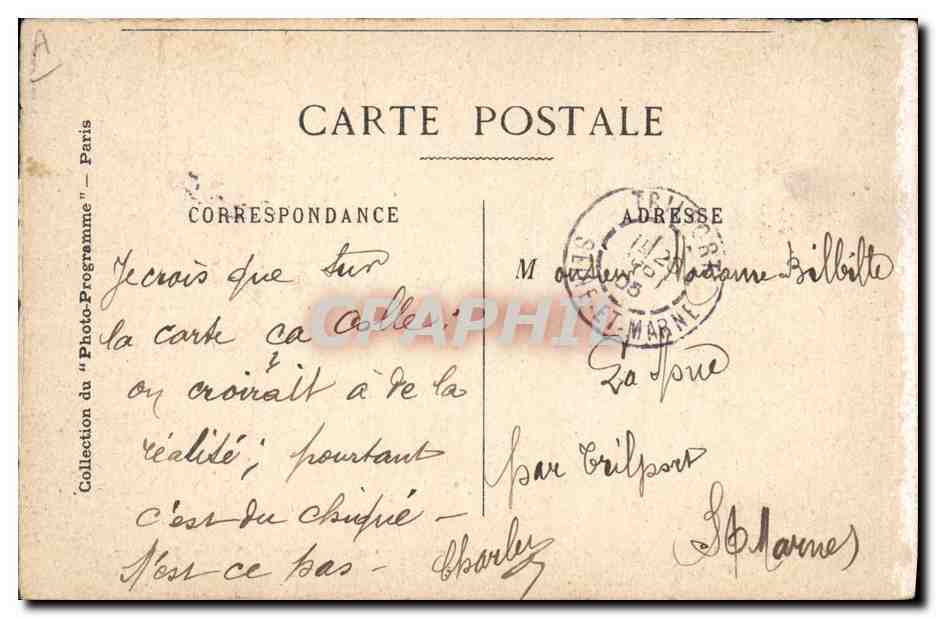 A
CARTE POSTALE
Collection du "Photo-Programme" — Paris
CORRESPONDANCE
Je crois que sur
la carte ça colle;
on croirait à de la
réalité; pourtant
c'est du chiqué —
N'est ce pas — Charley
ADRESSE
Monsieur Madame Bilbilte
La
par Trilport
S et Marne
TRILPORT
05
SEINE-ET-MARNE
CPAPHIL